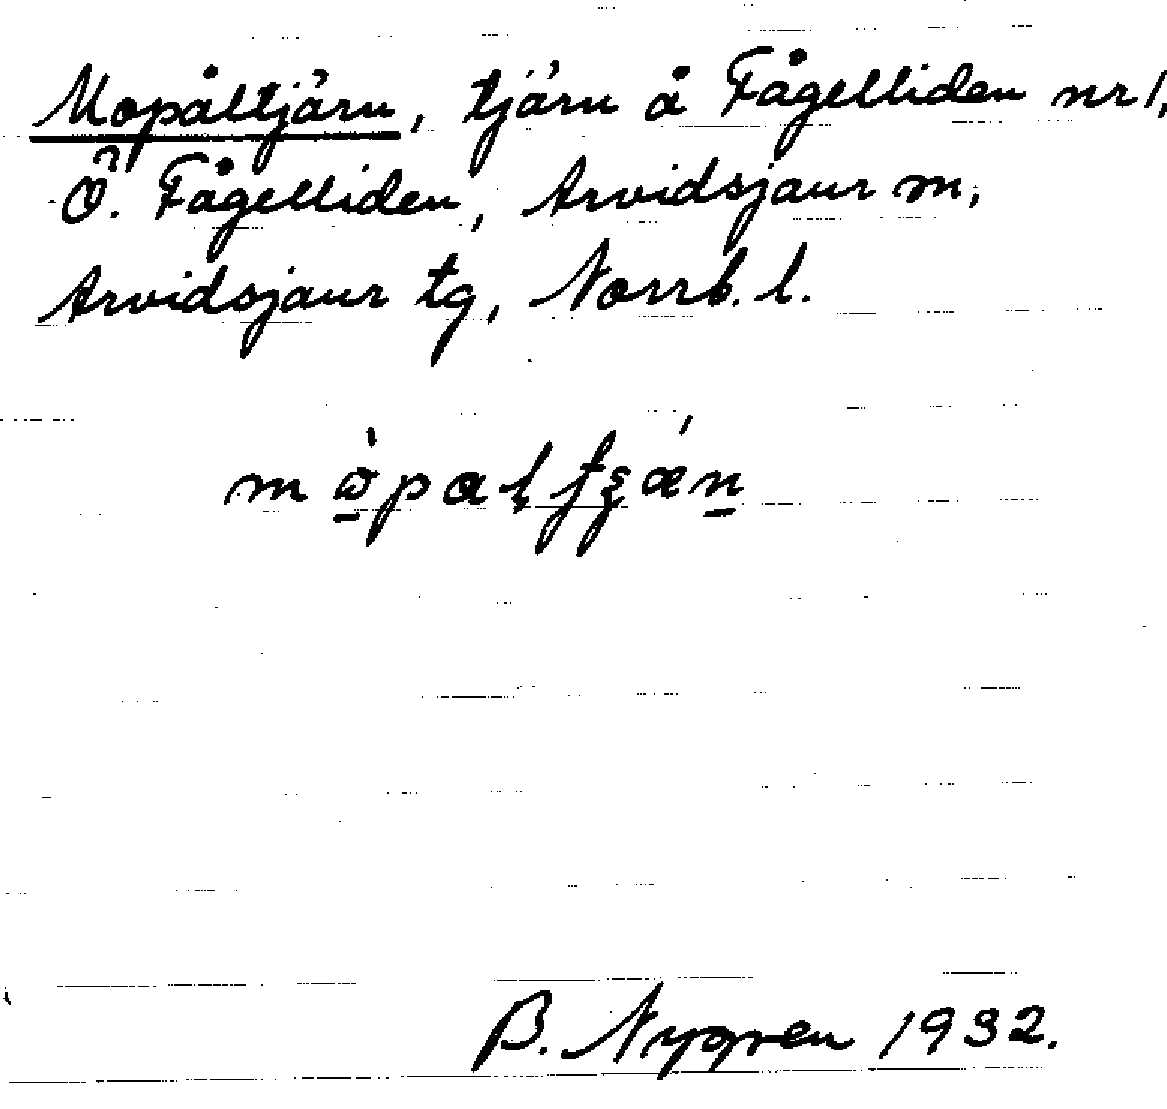 Mopåltjärn, tjärn å Fågelliden nr 1,
Ö. Fågelliden, Arvidsjaur m,
Arvidsjaur tg, Norrb. l.
B. Nygren 1932.